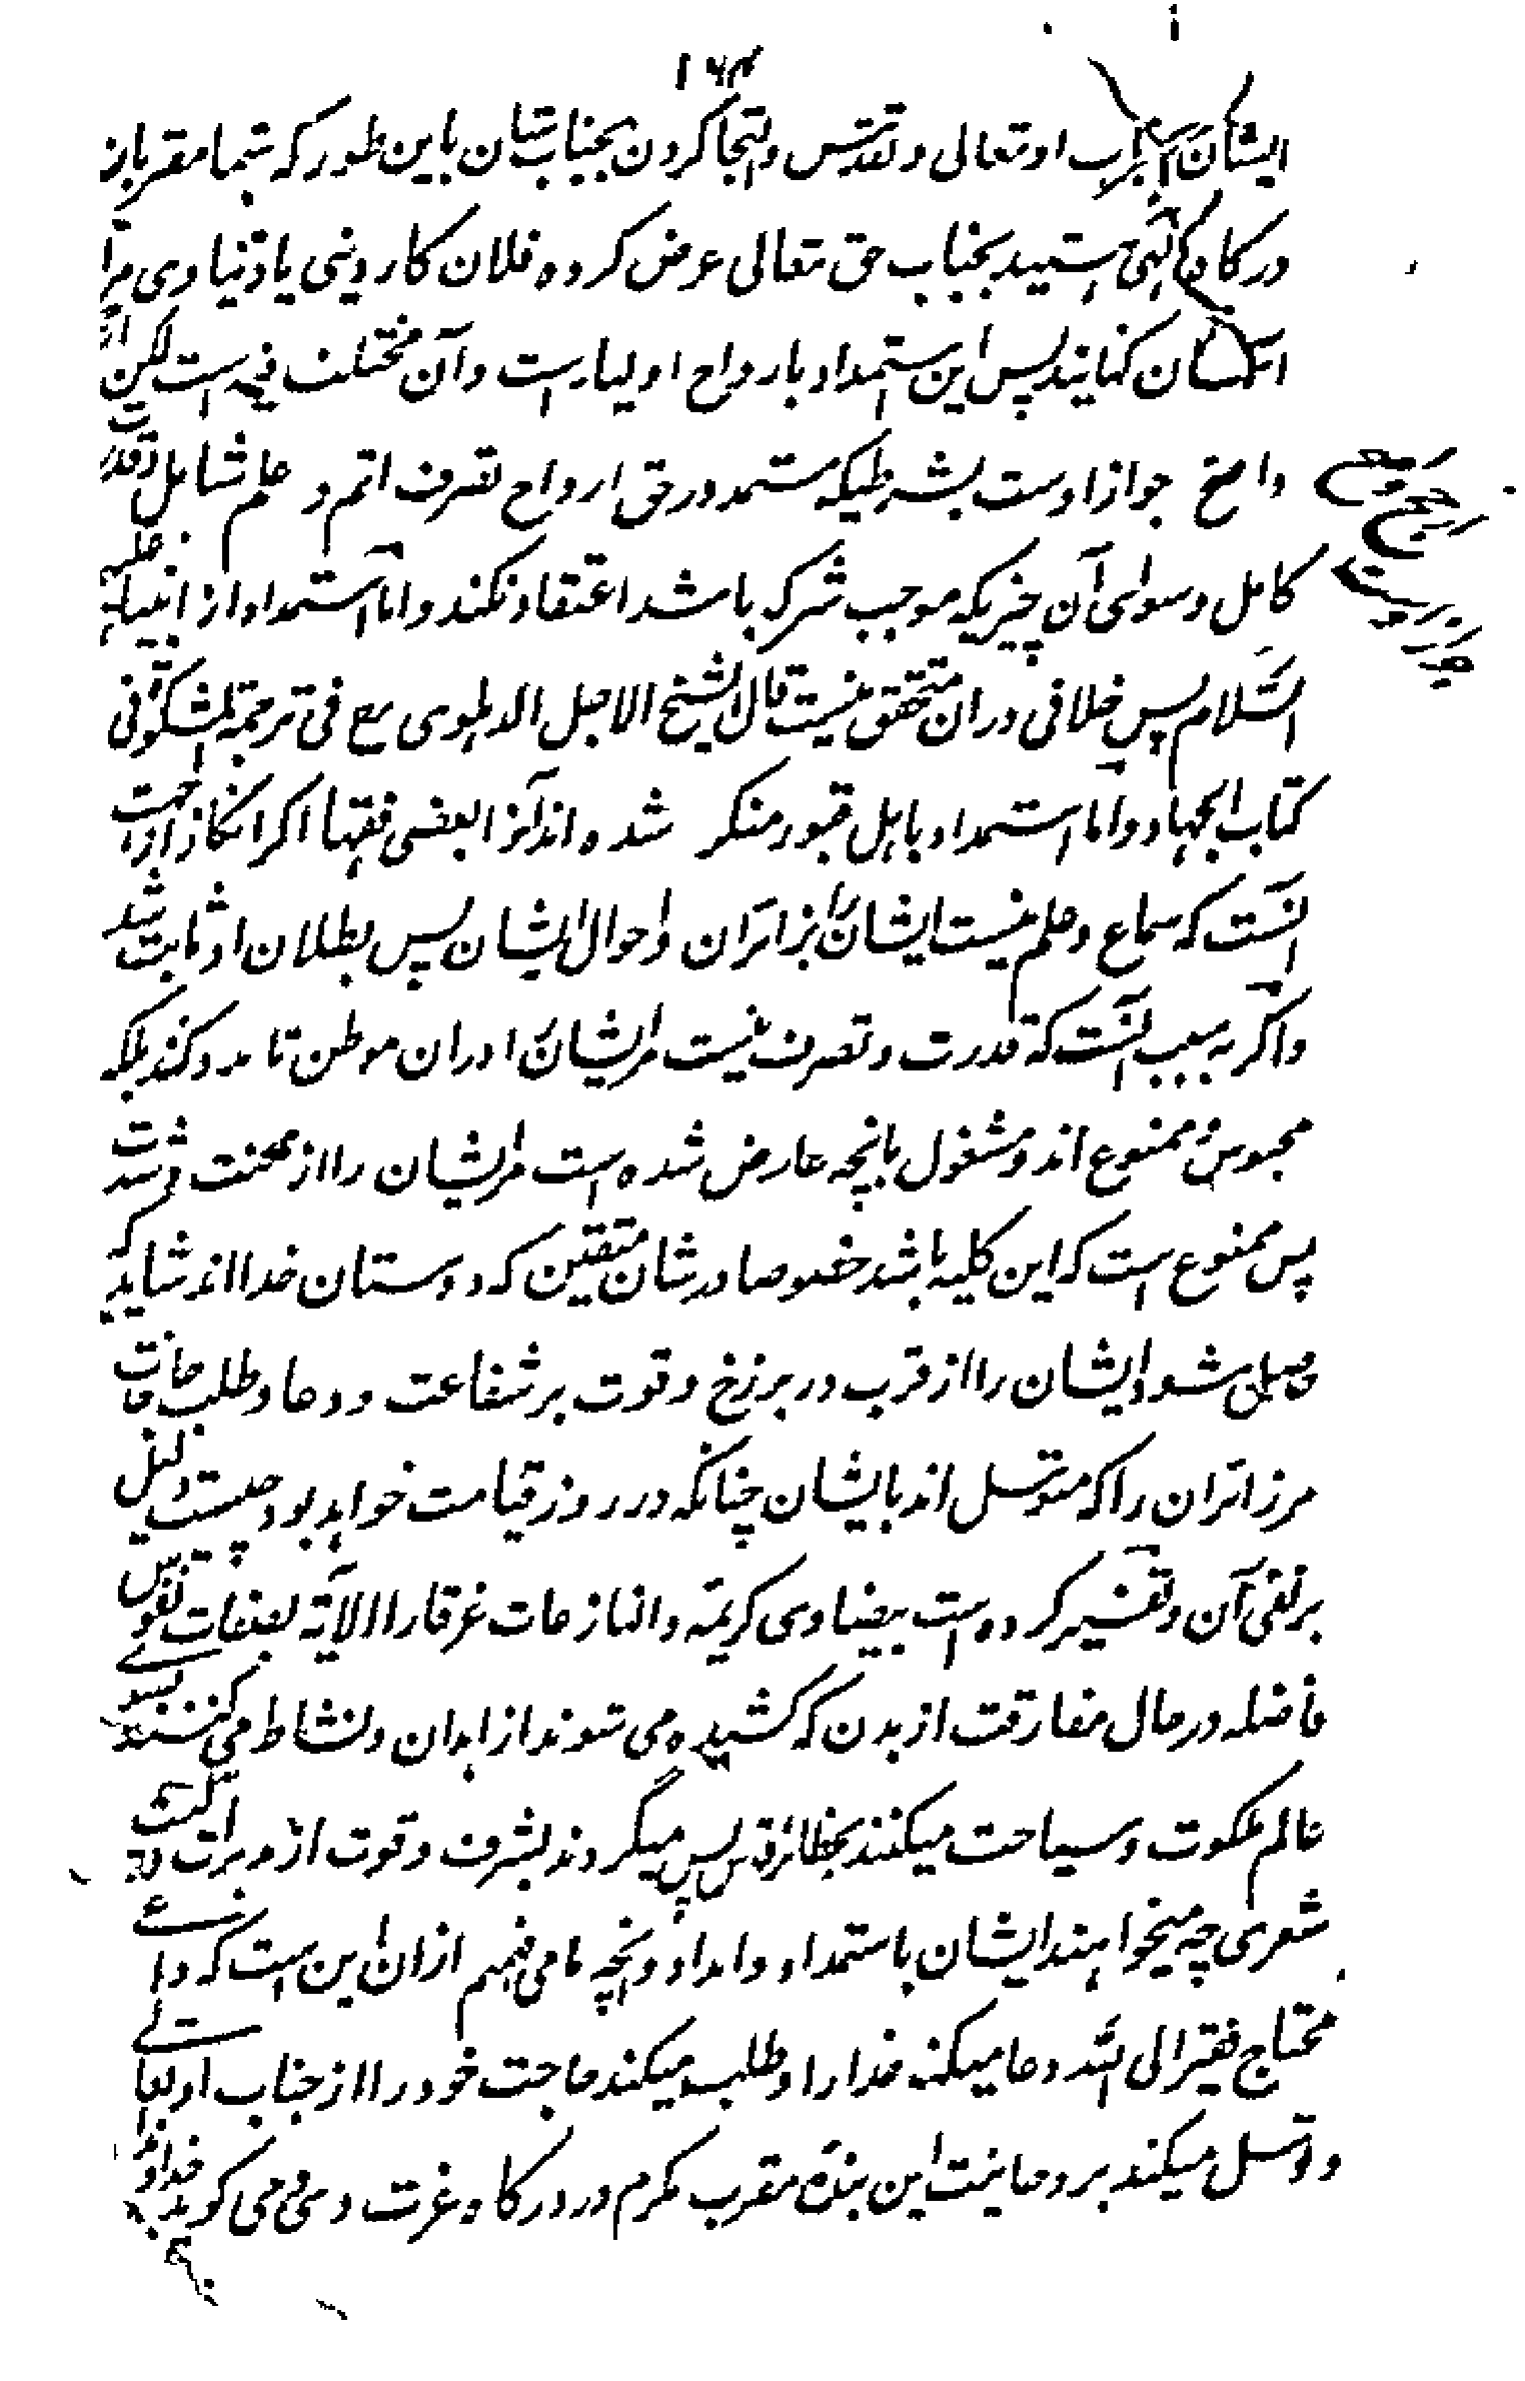 ۱۶۴
ایشان او تعالی و تقدس والتجا کردن بجناب شان باین طور که شما مقرب از
درگاه الهی استید بجناب حق تعالی عرض کرده فلان کار دینی یا دنیاوی مرا از
آسان کنانید پس این استمداد بارواح اولیا است و آن مختلف فیه است لیکن
واصح جواز اوست بشرطیکه مستمد در حق ارواح تصرف اتم و علم شامل و قدرت
کامل و سوای آن چیزیکه موجب شرک باشد اعتقاد نکند و اما استمداد از انبیا علیهم
السلام پس خلافی دران متحقق نیست قال الشیخ الاجل الدهلوی رح فی ترجمة المشکوٰة فی
کتاب الجهاد و اما استمداد باهل قبور منکر شده اند آنرا بعضی فقها اگر انکار از جهت
آنست که سماع و علم نیست ایشان را بزائران و احوال ایشان پس بطلان او ثابت شد
و اگر به سبب آنست که قدرت و تصرف نیست مر ایشان را دران موطن تا مدد کنند بلکه
محبوس و ممنوع اند و مشغول بانچه عارض شده است مر ایشان را از محنت و شدت
پس ممنوع است که این کلیه باشد خصوصا در شان متقین که دوستان خدا اند شاید که
حاصل شود ایشان را از قرب در برزخ و قوت بر شفاعت و دعا و طلب حاجات
مر زائران را که متوسل اند بایشان چنانکه در روز قیامت خواهد بود چیست دلیل
بر نفی آن و تفسیر کرده است بیضاوی کریمه والنازعات غرقا را الآیة بصفات نفوس
فاضله در حال مفارقت از بدن که کشیده می شوند از ابدان و نشاط می کنند بسوی
عالم ملکوت و سیاحت میکنند بحظائر قدس پس میگردند بشرف و قوت از مدبرات
شعری چه میخواهند ایشان باستمداد و امداد و آنچه ما می فهمیم ازان این است که داعی
محتاج فقیر الی الله دعا میکند خدا را و طلب میکند حاجت خود را از جناب او تعالی
و توسل میکند بروحانیت این بندهٔ مقرب مکرم در درگاه عزت وی و می گوید خداوندا